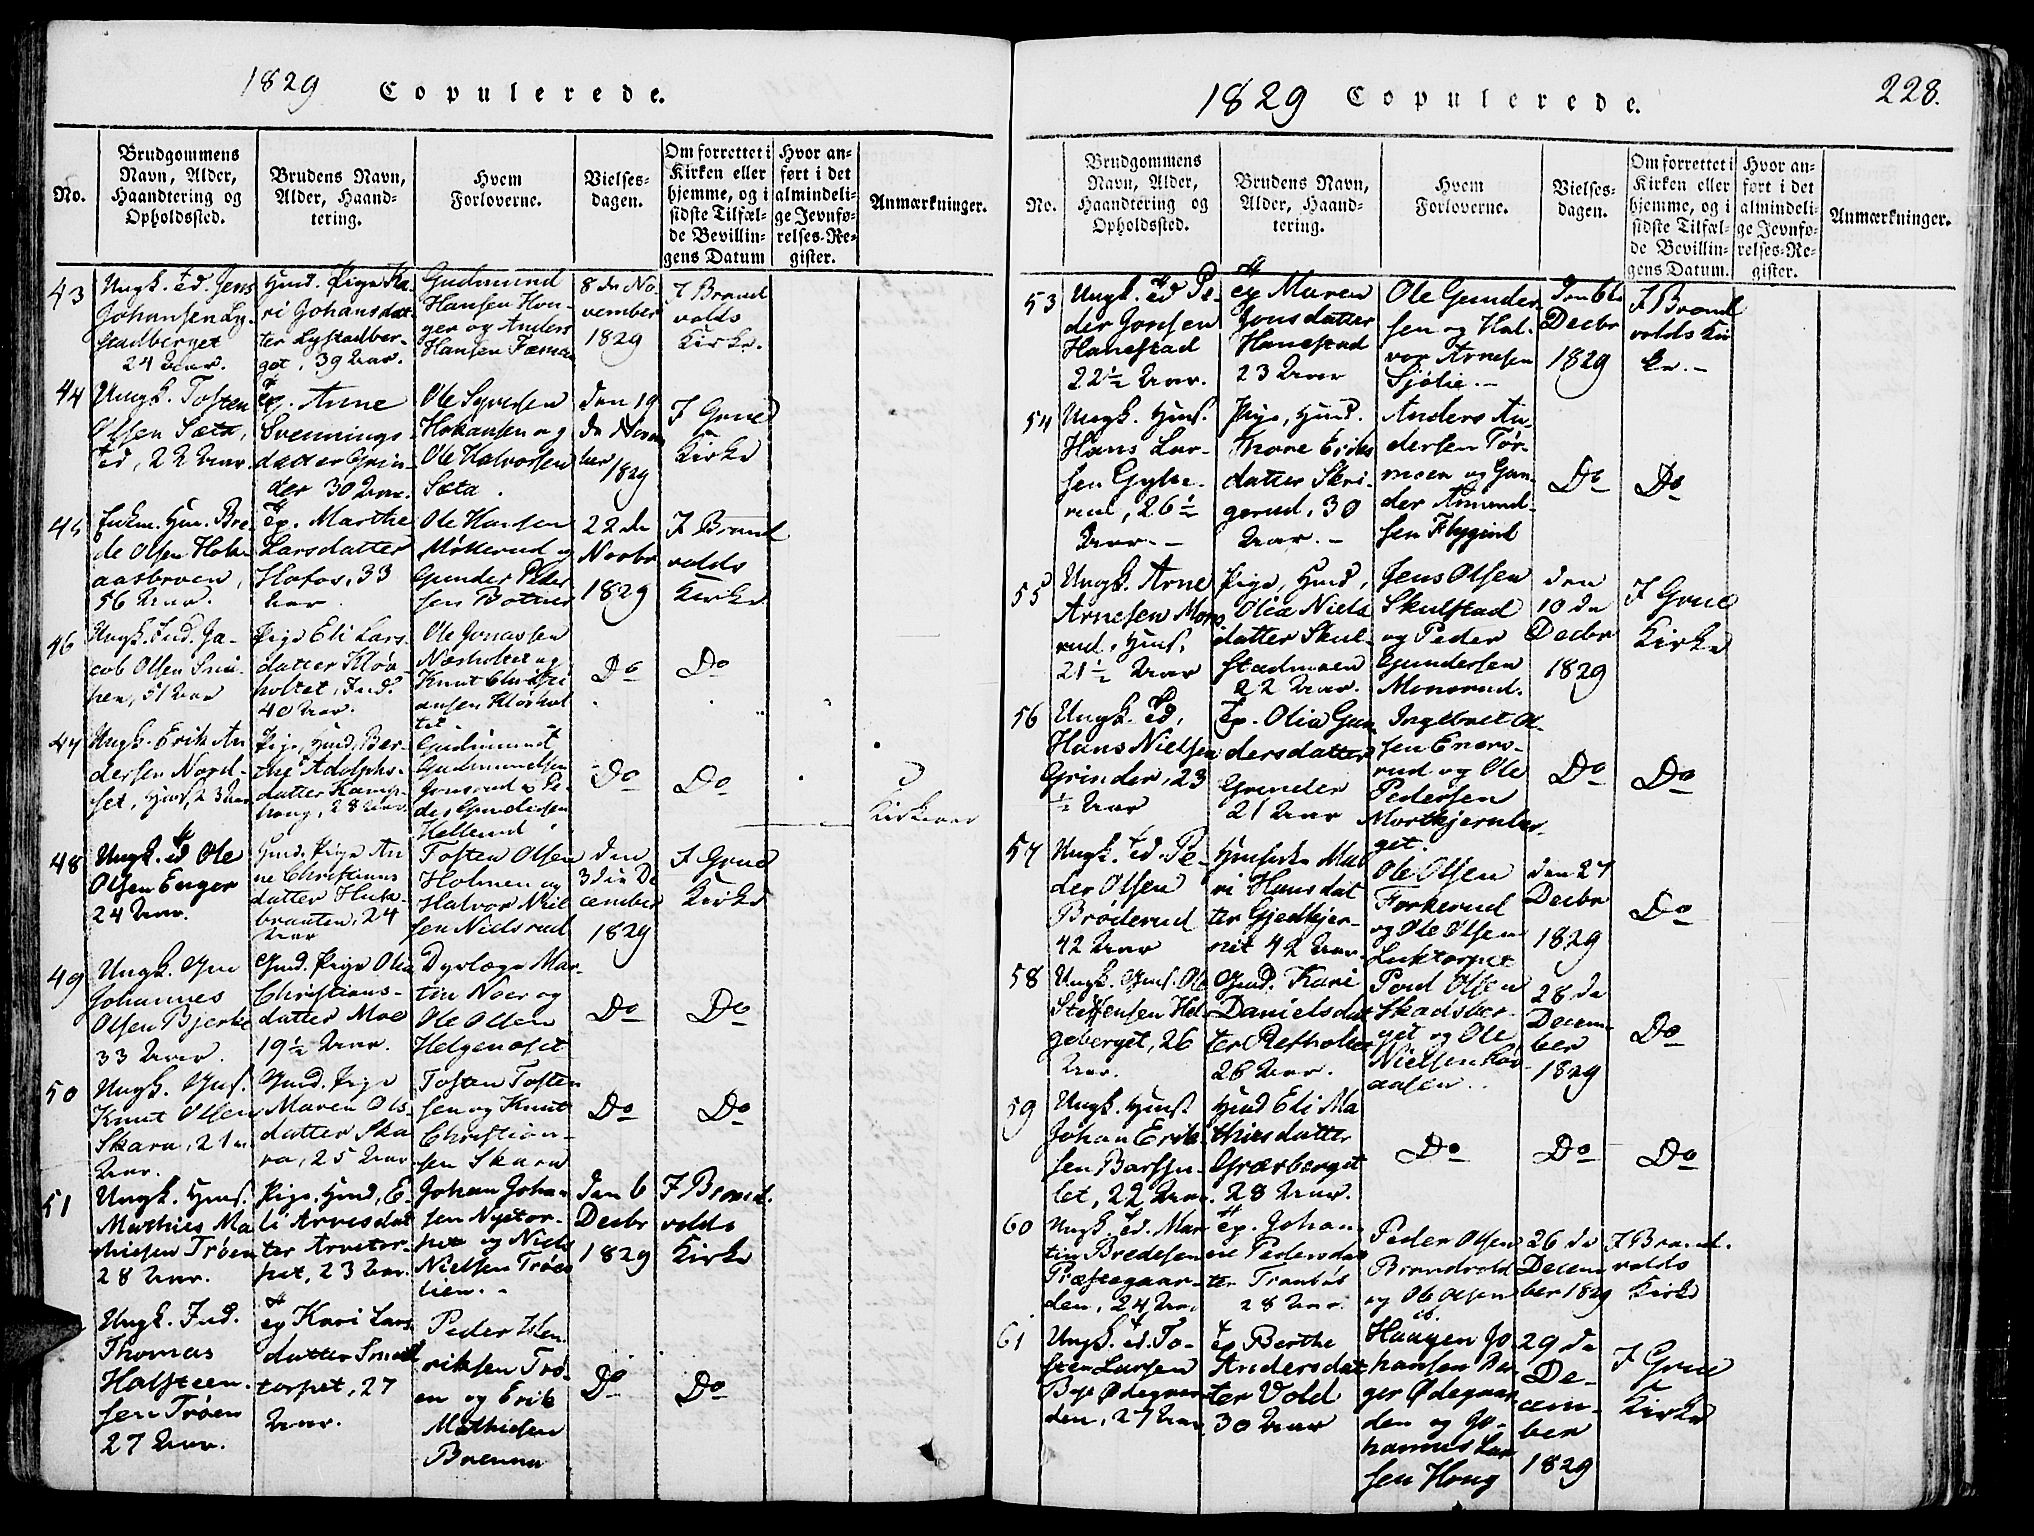 1829 Copulerede.
No.
Brudgommens
Navn, Alder,
Haandtering og
Opholdssted.
Brudens Navn,
Alder, Haand-
tering.
Hvem
Forloverne.
Vielses-
dagen.
Om forrettet i
Kirken eller
hjemme, og i
sidste Tilfæl-
de Bevillin-
gens Datum
Hvor an-
ført i det
almindeli-
ge Jevnfø-
relses-Re-
gister.
Anmærkninger.
43
Ungk. Ed. Jens
Johansen Ly-
stadberget
24 Aar.
Huusl. Pige Ka-
ri Johansdat-
ter Lystadber-
get, 39 Aar.
Gudmund
Hansen Hou-
ger og Anders
Hansen
8 de No-
vember
1829
I Brand
volds
Kirke.
44
Ungk. Tosten
Olsen Sæta,
Ed, 22 Aar.
Ep. Anne
Svennings-
datter Grin-
der 30 Aar.
Ole Syversen
Hokansen og
Ole Halvorsen
Sæta.
Den 19
de Novem
ber 1829
I Grue
Kirke
45
Enkm. Huu. Bre-
de Olsen Holm-
aasbroen,
56 Aar.
Ep. Marthe
Larsdatter
Hofos, 33
Aar.
Ole Hansen
Møkkerud og
Gunder Peder
sen Botner
22 de
Novbr
1829
I Brand
volds
Kirke
46
Ungk. Ind. Ja-
cob Olsen Snu-
pen, 51 Aar
Pige Eli Lars
datter Kløv
holtet, Ind.
40 Aar.
Ole Jonassen
Næsholtet og
Knut Christi
ansen Kløvhol
tet.
Do
Do
47
Ungk. Erik An
dersen Nord-
set, Huusl. 23 Aar
Pige, Huusl. Ber-
the Adolphs-
datter Kamp-
houg, 28 Aar.
Gudmund
Gudmundsen
Jonsrud og Pe-
der Gundersen
Hellerud.
Do
Do
48
Ungk. Ed Ole
Olsen Enger
24 Aar.
Huusl. Pige An
ne Christians
datter Huk-
brauten, 24
Aar
Tosten Olsen
Holmen og
Halvor Niel
sen Nielsrud
Den
3die De
cember
1829
I Grue
Kirke
49
Ungk. Huu
Johannes
Olsen Bjerke
33 Aar.
Huusl. Pige Olia
Christians-
datter Moe
19½ Aar.
Dyrlæge Mar-
tin Noer og
Ole Olsen
Helgenæset
Do
Do
50
Ungk. Huus.
Knut Olsen
Skara, 21
Aar.
Huusl. Pige
Maren Ols-
datter Ska
ra, 25 Aar
Tosten Tosten
sen og Knut
Christian-
sen Skara
Do
Do
51
Ungk. Huus.
Mathies Ma
thiesen Trøen
28 Aar.
Pige. Huusl. E-
li Arnesdat
ter Arnetor-
pet, 23 Aar.
Johan Joha-
sen Nystor-
pet og Niels
Nielsen Trøs
lien.
Den 6
Decbr
1829
I Brand.
volds
Kirke
Ungk. Ind.
Thomas
Halsteen-
sen Trøen
27 Aar.
ep Kari Lars
datter Smed
torpet, 27
Aar.
Peder Hen-
riksen Trø-
en og Erik
Mathiesen
Brenna
Do
Do
1829 Copulerede. 228.
No.
Brudgommens
Navn, Alder,
Haandtering og
Opholdssted.
Brudens Navn,
Alder, Haand-
tering.
Hvem
Forloverne.
Vielses-
dagen.
Om forrettet i
Kirken eller
hjemme, og i
sidste Tilfæl-
de Bevillin-
gens Datum.
Hvor an-
ført i det
almindeli-
ge Jevnfø-
relses-Re-
gister.
Anmærkninger.
53
Ungk. Ed Pe-
der Jonsen
Hanestad
22½ Aar.
ep Maren
Jonsdatter
Hanestad
23 Aar
Ole Gunder-
sen og Hal-
vor Arnesen
Sjølie.
Den 6te
Decbr
1829
I Brand
volds Kir
ke.
54
Ungk. Huus.
Hans Lar-
sen Gylte-
rud, 26½
Aar.
Pige, Huusl.
Thore Eriks
datter Skri-
gerud, 30
Aar.
Anders An-
dersen Tør-
moen og Gun-
der Amund-
sen Flygind
Do
Do
55
Ungk. Arne
Arnesen Mons
rud, Huus.
21½ Aar
Pige, Huusl,
Olia Niels
datter Skul-
stadmoen
22 Aar.
Jens Olsen
Skulstad
og Peder
Gundersen
Monsrud.
Den
10 de
Decbr
1829
I Grue
Kirke
56
Ungk. Ed,
Hans Nielsen
Grinder, 23
½ Aar
Ep. Olia Gun
dersdatter
Grinder
21 Aar
Ingebret Ol
sen Eners-
rud og Ole
Pedersen
Mortkjernber-
get.
Do
Do
57
Ungk. Ed. Pe-
der Olsen
Brøderud
42 Aar
Ma
ri Hansdat
ter Gjedtjer-
net 42 Aar.
Ole Olsen
Forkerud
og Ole Olsen
Luktorpet
Den 27
Decbr
1829
Do
58
Ungk. Huus. Ole
Steffensen Hel-
geberget, 26
Aar.
Huusl. Kari
Danielsdat
ter Refholtet
26 Aar.
Poul Olsen
Skadsber-
get og Ole
Nielsen Løv
aasen.
28 de
Decem-
ber
1829
Do
59
Ungk. Huus.
Johan Erik-
sen Barsjø-
let, 22 Aar.
Huusl Eli Ma
thiesdatter
Græsberget
28 Aar.
Do
Do
Do
60
Ungk. Ed. Mar
tin Bredesen
Præstegaar-
den, 24 Aar
ep. Johan-
ne Pedersdat
ter Tranbøl
28 Aar.
Peder Olsen
Brandvold
og Ole Olsen
ib.
26 de
Decem
ber 1829
I Brand.
volds
Kirke
61
Ungk. Ed. To-
sten Larsen
Berg Ødegaar
den, 27 Aar
ep Berthe
Andersdat
ter Vold
30 Aar
Haagen Jo
hansen Ber
ger Ødegaar
den og Jo-
hannes Lar
sen Houg
29 de
De-
cem-
ber
1829
I Grue
Kirke